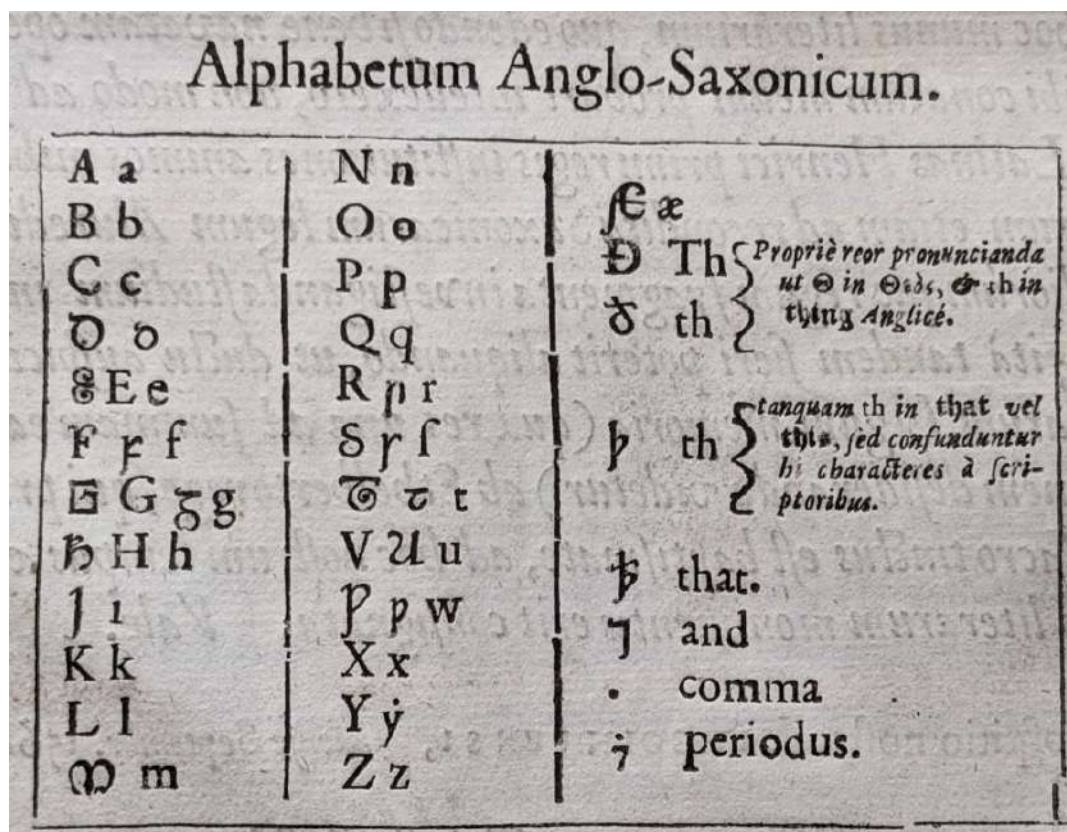 Alphabetum Anglo-Saxonicum.
A a
B b
C c
Ꝺ ꝺ
E e
F ꝼ f
G ᵹ g
Ħ H h
J ı
K k
L l
M m
N n
O o
P p
Q q
R ꞃ r
S ꞅ ſ
T ꞇ t
V U u
Ƿ ƿ w
X x
Y ẏ
Z z
Æ æ
Ð Th
ð th
Propriè reor pronuncianda
ut Θ in Θεὸς, & th in
thing Anglicé.
þ th
tanquam th in that vel
this, ſed confunduntur
hi characteres à ſcri-
ptoribus.
ꝥ that.
⁊ and
. comma
periodus.